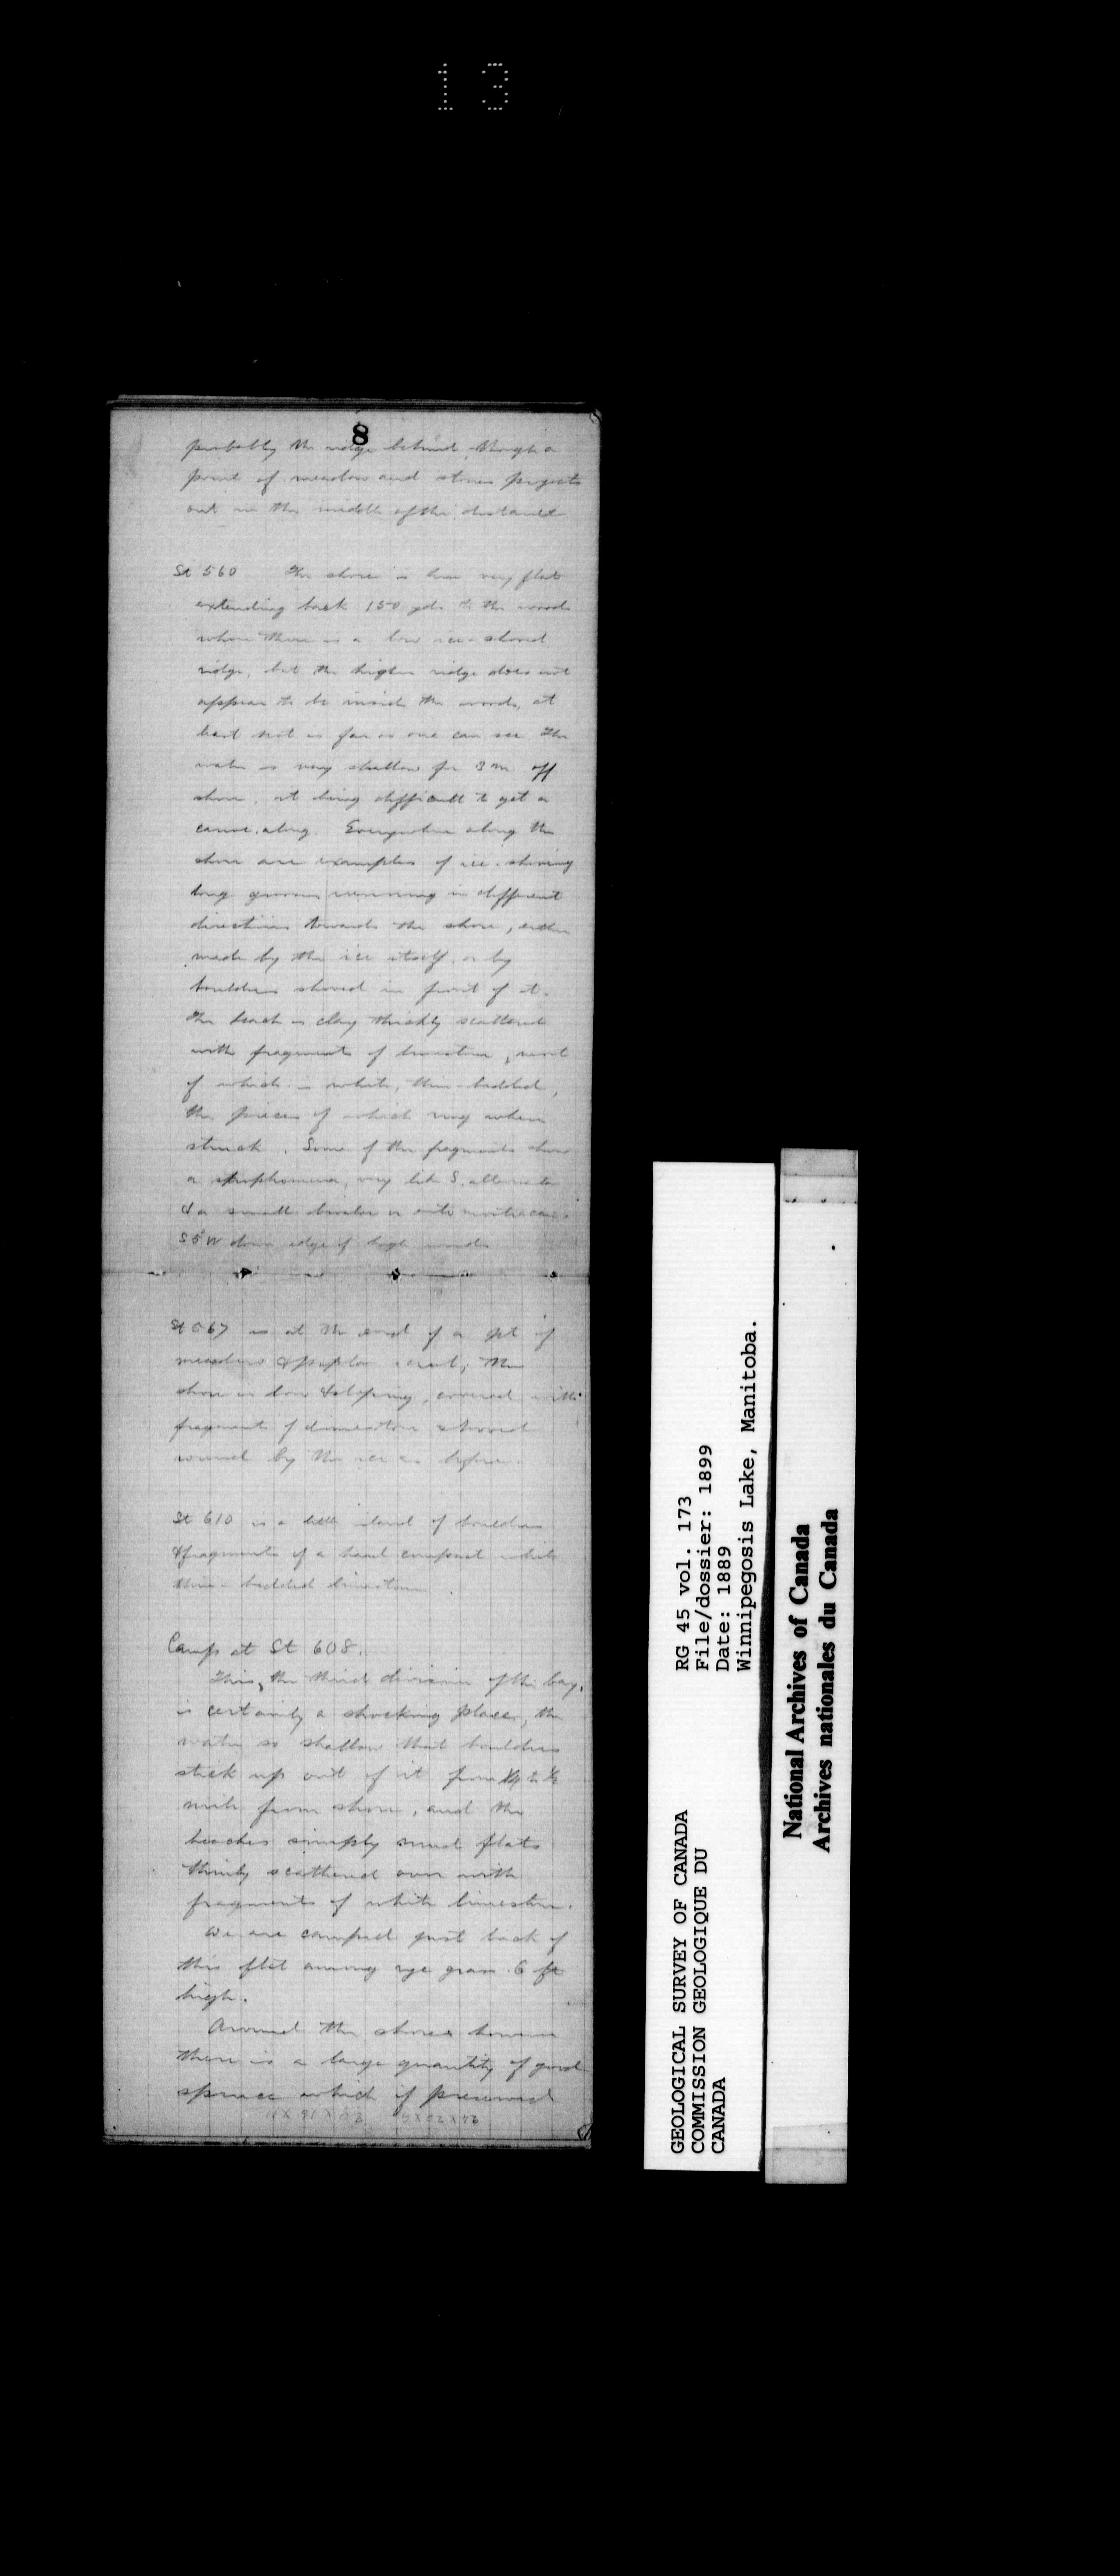 13
8
probably the ridge behind, though a
point of meadow and stones projects
out in the middle of the distance
St 560 The shore is here very flat
extending back 150 yds to the woods
where there is a low ice-shoved
ridge, but the higher ridge does not
appear to be inside the woods, at
least not as far as one can see. The
water is very shallow for 3 m. off
shore, it being difficult to get a
canoe along. Everywhere along the
shore are examples of ice-shoving
long grooves running in different
directions towards the shore, either
made by the ice itself, or by
boulders shoved in front of it.
The beach is clay thickly scattered
with fragments of limestone, most
of which is white, thin-bedded,
the pieces of which ring when
struck. Some of the fragments show
a strophomena, very like S. alternata
& a small
edge of high woods
St 567 is at the end of a pt of
meadow & poplar, the
shore is low & sloping, covered with
fragments of limestone shoved
round by the ice as before.
St 610 is a little island of boulders
& fragments of a hard compact white
thin-bedded limestone.
Camp at St 608.
This, the third division of the bay,
is certainly a shocking place, the
water so shallow that boulders
stick up out of it from 1/4 to 1/2
mile from shore, and the
beaches simply mud flats
thinly scattered over with
fragments of white limestone.
We are camped just back of
this flat among rye grass 6 ft
high.
Around the shores however
there is a large quantity of good
spruce which if preserved
GEOLOGICAL SURVEY OF CANADA
COMMISSION GEOLOGIQUE DU
CANADA
RG 45 vol. 173
File/dossier: 1899
Date: 1889
Winnipegosis Lake, Manitoba.
National Archives of Canada
Archives nationales du Canada